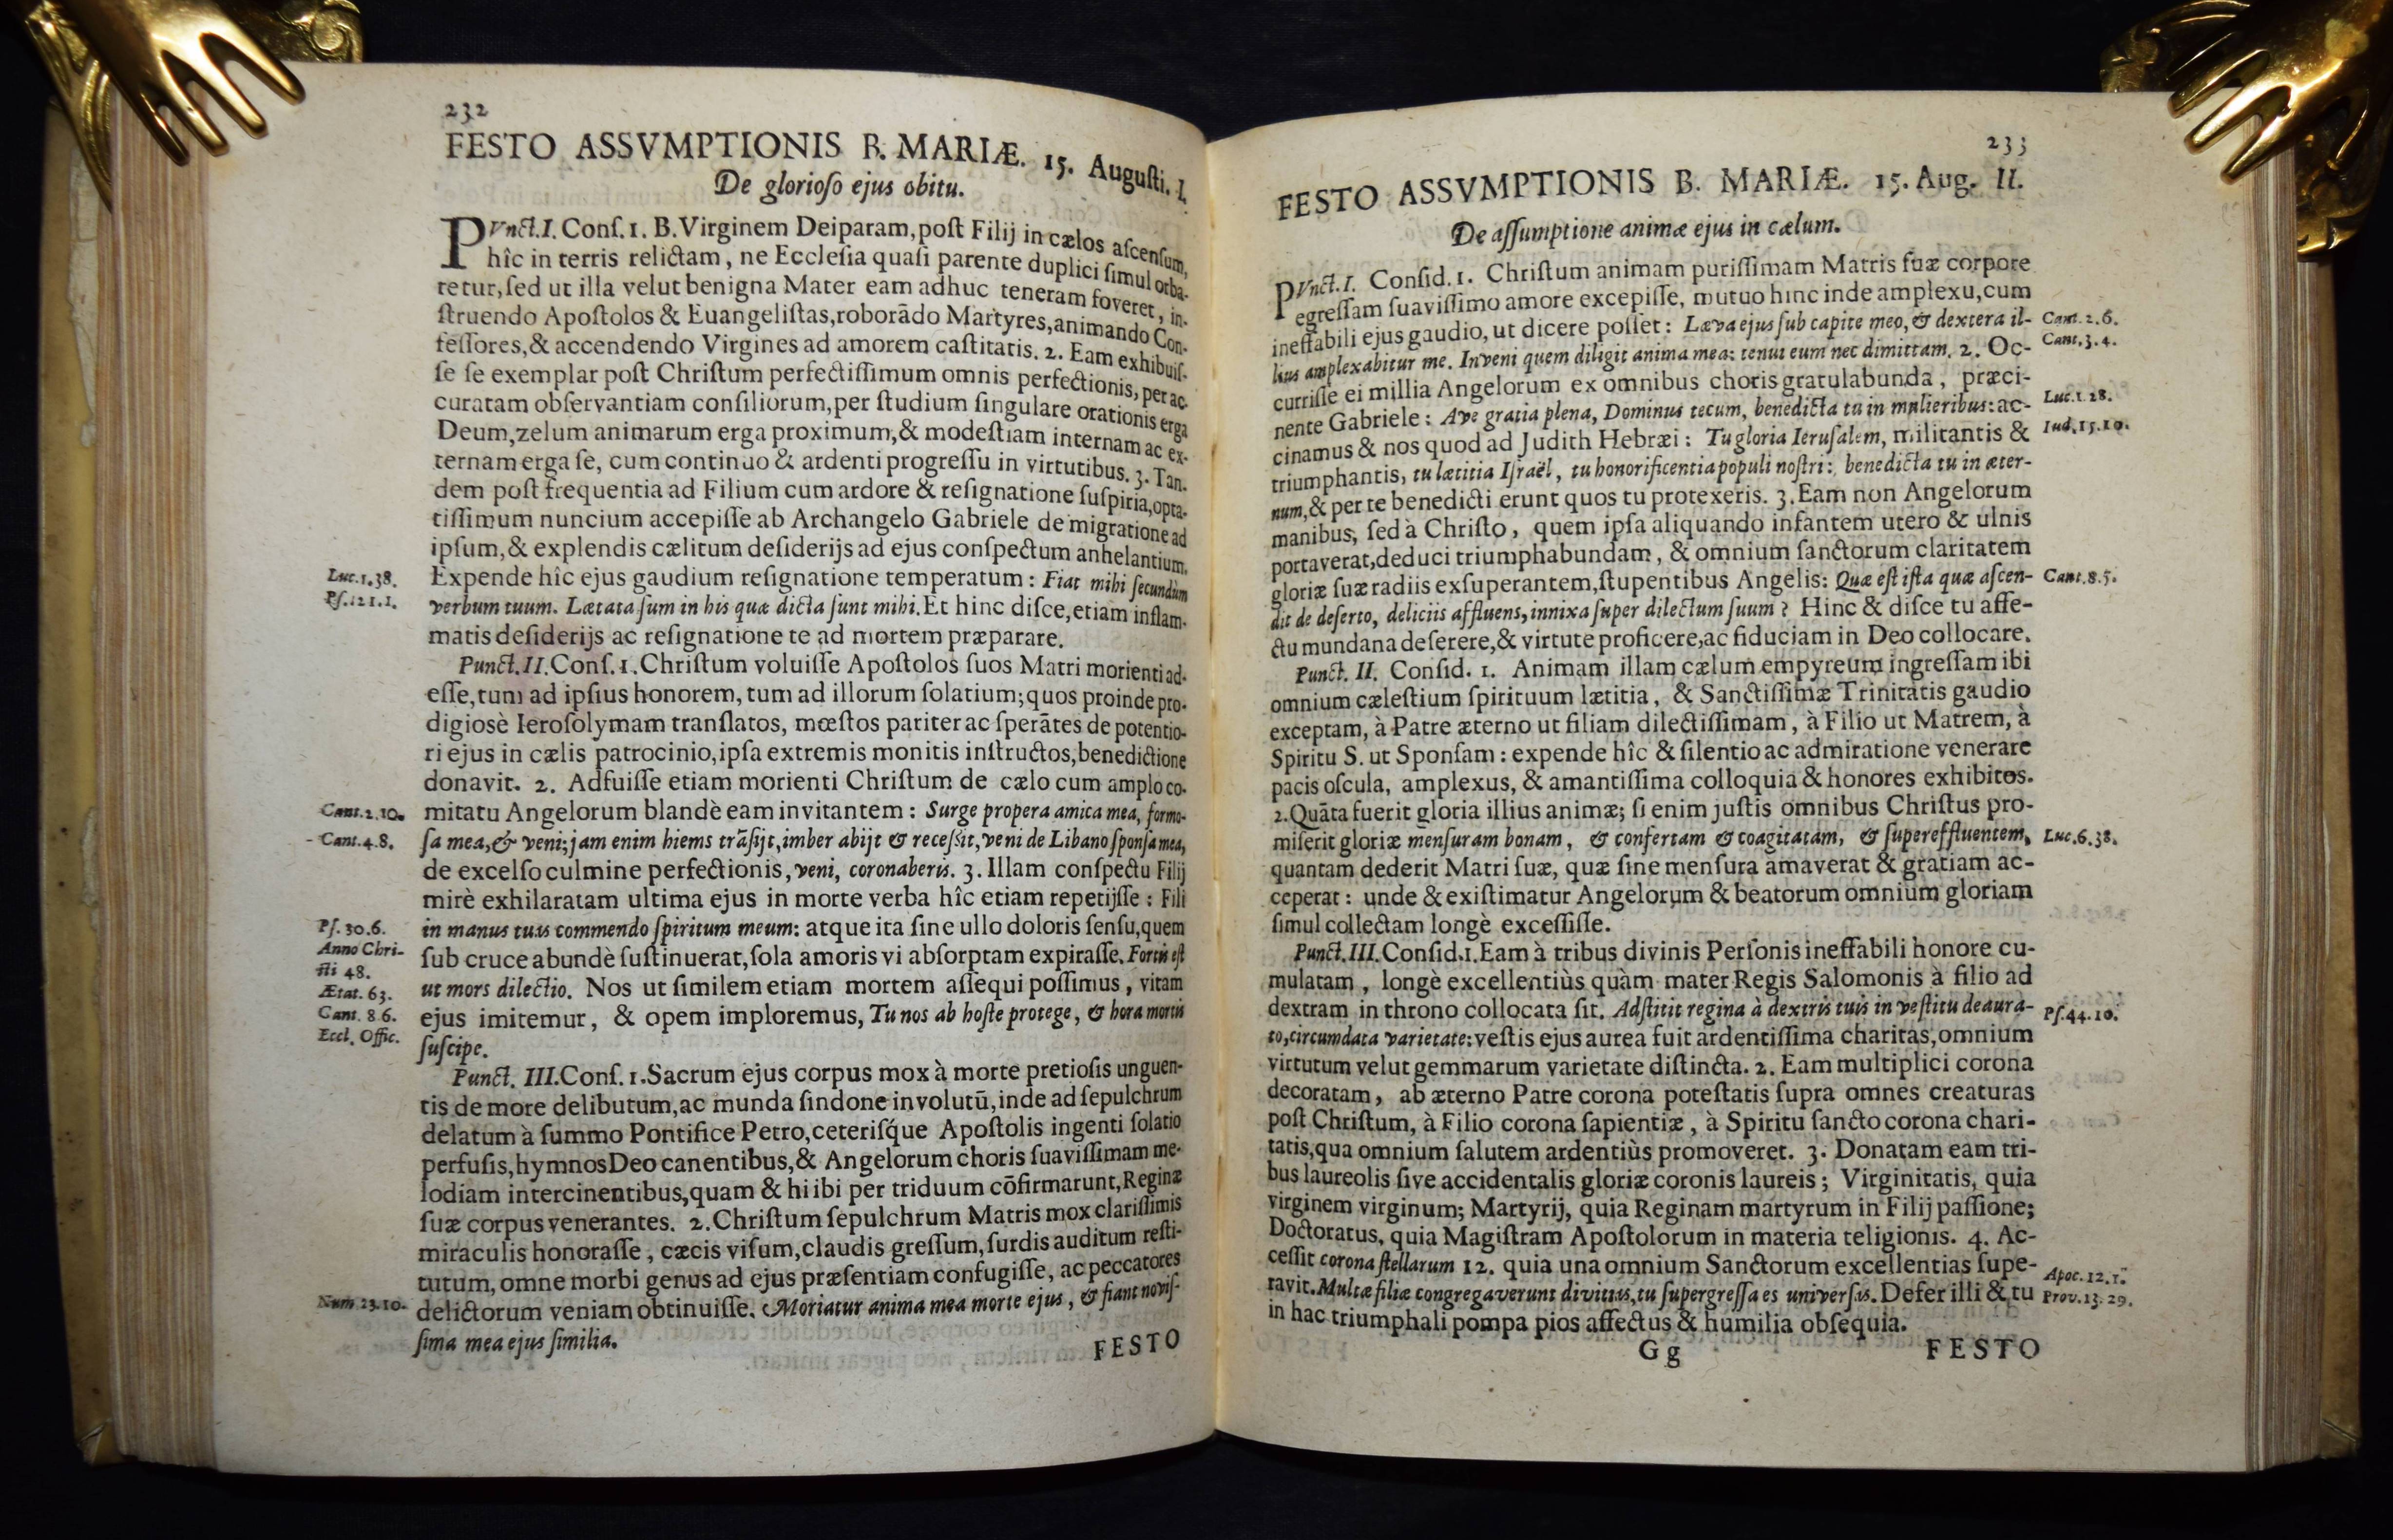 232
FESTO ASSVMPTIONIS B. MARIÆ. 15. Auguſti. I.
De glorioſo ejus obitu.
PVnct. I. Conſ. 1. B. Virginem Deiparam, poſt Filij in cælos aſcenſum,
hîc in terris relictam, ne Eccleſia quaſi parente duplici ſimul orba-
retur, ſed ut illa velut benigna Mater eam adhuc teneram foveret, in-
ſtruendo Apoſtolos & Euangeliſtas, roborãdo Martyres, animando Con-
feſſores, & accendendo Virgines ad amorem caſtitatis. 2. Eam exhibuiſ-
ſe ſe exemplar poſt Chriſtum perfectiſſimum omnis perfectionis, per ac-
curatam obſervantiam conſiliorum, per ſtudium ſingulare orationis erga
Deum, zelum animarum erga proximum, & modeſtiam internam ac ex-
ternam erga ſe, cum continuo & ardenti progreſſu in virtutibus. 3. Tan-
dem poſt frequentia ad Filium cum ardore & reſignatione ſuſpiria, opta-
tiſſimum nuncium accepiſſe ab Archangelo Gabriele de migratione ad
ipſum, & explendis cælitum deſiderijs ad ejus conſpectum anhelantium.
Luc. 1. 38. Expende hîc ejus gaudium reſignatione temperatum: Fiat mihi ſecundùm
Pſ. 121. 1. verbum tuum. Lætata ſum in his quæ dicta ſunt mihi. Et hinc diſce, etiam inflam-
matis deſiderijs ac reſignatione te ad mortem præparare.
Punct. II. Conſ. 1. Chriſtum voluiſſe Apoſtolos ſuos Matri morienti ad-
eſſe, tum ad ipſius honorem, tum ad illorum ſolatium; quos proinde pro-
digiosè Ieroſolymam tranſlatos, mœſtos pariter ac ſperãtes de potentio-
ri ejus in cælis patrocinio, ipſa extremis monitis inſtructos, benedictione
donavit. 2. Adfuiſſe etiam morienti Chriſtum de cælo cum amplo co-
Cant. 2. 10. mitatu Angelorum blandè eam invitantem: Surge propera amica mea, formo-
Cant. 4. 8. ſa mea, & veni; jam enim hiems trãſijt, imber abijt & receſſit, veni de Libano ſponſa mea,
de excelſo culmine perfectionis, veni, coronaberis. 3. Illam conſpectu Filij
mirè exhilaratam ultima ejus in morte verba hîc etiam repetijſſe: Fili
Pſ. 30. 6. in manus tuas commendo ſpiritum meum: atque ita ſine ullo doloris ſenſu, quem
Anno Chri- ſub cruce abundè ſuſtinuerat, ſola amoris vi abſorptam expiraſſe. Fortis eſt
ſti 48.
Ætat. 63. ut mors dilectio. Nos ut ſimilem etiam mortem aſſequi poſſimus, vitam
Cant. 8 6. ejus imitemur, & opem imploremus, Tu nos ab hoſte protege, & hora mortis
Eccl. Offic. ſuſcipe.
Punct. III. Conſ. 1. Sacrum ejus corpus mox à morte pretioſis unguen-
tis de more delibutum, ac munda ſindone involutũ, inde ad ſepulchrum
delatum à ſummo Pontifice Petro, ceteriſq́ue Apoſtolis ingenti ſolatio
perfuſis, hymnos Deo canentibus, & Angelorum choris ſuaviſſimam me-
lodiam intercinentibus, quam & hi ibi per triduum cõfirmarunt, Reginæ
ſuæ corpus venerantes. 2. Chriſtum ſepulchrum Matris mox clariſſimis
miraculis honoraſſe, cæcis viſum, claudis greſſum, ſurdis auditum reſti-
tutum, omne morbi genus ad ejus præſentiam confugiſſe, ac peccatores
Num. 23. 10. delictorum veniam obtinuiſſe. Moriatur anima mea morte ejus, & fiant noviſ-
ſima mea ejus ſimilia.
FESTO
233
FESTO ASSVMPTIONIS B. MARIÆ. 15. Aug. II.
De aſſumptione animæ ejus in cælum.
PVnct. I. Conſid. 1. Chriſtum animam puriſſimam Matris ſuæ corpore
egreſſam ſuaviſſimo amore excepiſſe, mutuo hinc inde amplexu, cum
ineffabili ejus gaudio, ut dicere poſſet: Læva ejus ſub capite meo, & dextera il- Cant. 2. 6.
lius amplexabitur me. Inveni quem diligit anima mea: tenui eum nec dimittam. 2. Oc- Cant. 3. 4.
curriſſe ei millia Angelorum ex omnibus choris gratulabunda, præci-
nente Gabriele: Ave gratia plena, Dominus tecum, benedicta tu in mulieribus: ac- Luc. 1. 28.
cinamus & nos quod ad Judith Hebræi: Tu gloria Ieruſalem, militantis & Iud. 15. 10.
triumphantis, tu lætitia Iſraël, tu honorificentia populi noſtri: benedicta tu in æter-
num, & per te benedicti erunt quos tu protexeris. 3. Eam non Angelorum
manibus, ſed à Chriſto, quem ipſa aliquando infantem utero & ulnis
portaverat, deduci triumphabundam, & omnium ſanctorum claritatem
gloriæ ſuæ radiis exſuperantem, ſtupentibus Angelis: Quæ eſt iſta quæ aſcen- Cant. 8. 5.
dit de deſerto, deliciis affluens, innixa ſuper dilectum ſuum? Hinc & diſce tu affe-
ctu mundana deſerere, & virtute proficere, ac fiduciam in Deo collocare.
Punct. II. Conſid. 1. Animam illam cælum empyreum ingreſſam ibi
omnium cæleſtium ſpirituum lætitia, & Sanctiſſimæ Trinitatis gaudio
exceptam, à Patre æterno ut filiam dilectiſſimam, à Filio ut Matrem, à
Spiritu S. ut Sponſam: expende hîc & ſilentio ac admiratione venerare
pacis oſcula, amplexus, & amantiſſima colloquia & honores exhibitos.
2. Quãta fuerit gloria illius animæ; ſi enim juſtis omnibus Chriſtus pro-
miſerit gloriæ menſuram bonam, & confertam & coagitatam, & ſupereffluentem, Luc. 6. 38.
quantam dederit Matri ſuæ, quæ ſine menſura amaverat & gratiam ac-
ceperat: unde & exiſtimatur Angelorum & beatorum omnium gloriam
ſimul collectam longè exceſſiſſe.
Punct. III. Conſid. 1. Eam à tribus divinis Perſonis ineffabili honore cu-
mulatam, longè excellentiùs quàm mater Regis Salomonis à filio ad
dextram in throno collocata ſit. Adſtitit regina à dextris tuis in veſtitu deaura- Pſ. 44. 10.
to, circumdata varietate: veſtis ejus aurea fuit ardentiſſima charitas, omnium
virtutum velut gemmarum varietate diſtincta. 2. Eam multiplici corona
decoratam, ab æterno Patre corona poteſtatis ſupra omnes creaturas
poſt Chriſtum, à Filio corona ſapientiæ, à Spiritu ſancto corona chari-
tatis, qua omnium ſalutem ardentiùs promoveret. 3. Donatam eam tri-
bus laureolis ſive accidentalis gloriæ coronis laureis; Virginitatis, quia
virginem virginum; Martyrij, quia Reginam martyrum in Filij paſſione;
Doctoratus, quia Magiſtram Apoſtolorum in materia religionis. 4. Ac-
ceſſit corona ſtellarum 12. quia una omnium Sanctorum excellentias ſupe- Apoc. 12. 1.
ravit. Multæ filiæ congregaverunt divitias, tu ſupergreſſa es univerſas. Defer illi & tu Prov. 13. 29.
in hac triumphali pompa pios affectus & humilia obſequia.
Gg FESTO